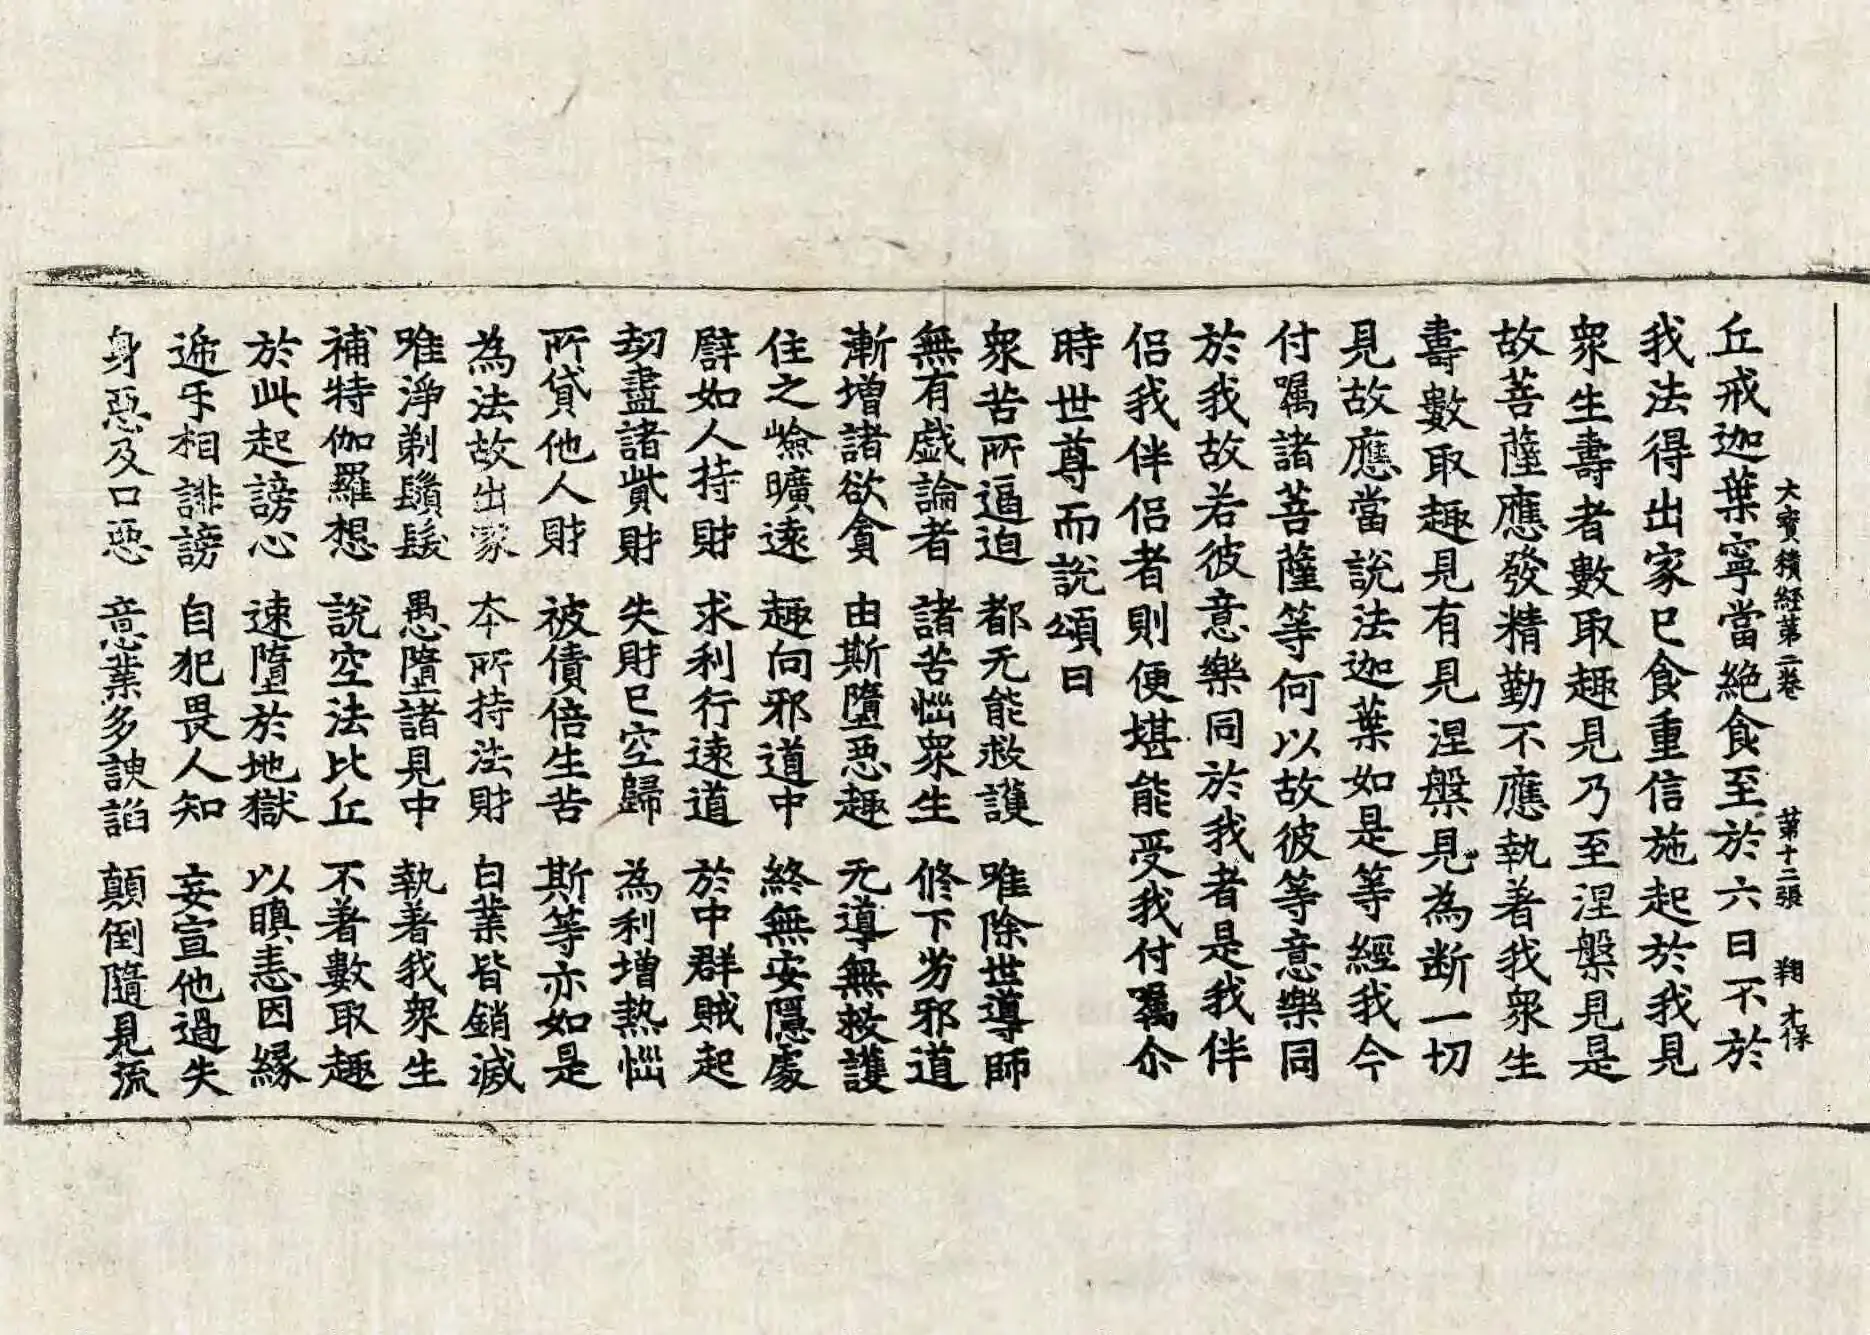 大寶積經第二卷 第十二張 鞠 才保
丘戒迦葉寧當絶食至於六日不於
我法得出家已食重信施起於我見
衆生壽者數取趣見乃至涅槃見是
故菩薩應發精勤不應執著我衆生
壽數取趣見有見涅槃見為断一切
見故應當說法迦葉如是等經我今
付囑諸菩薩等何以故彼等意樂同
於我故若彼意樂同於我者是我伴
侣我伴侣者則便堪能受我付囑尒
時世尊而說頌曰
衆苦所逼迫 都无能救護 唯除世導師
無有戱論者 諸苦惱衆生 修下劣邪道
漸増諸欲貪 由斯墮惡趣 无導無救護
住之嶮曠遠 趣向邪道中 終無安隱處
譬如人持財 求利行遠道 於中群賊起
劫盡諸貲財 失財已空歸 為利増熱惱
所貸他人財 被債倍生苦 斯等亦如是
為法故出家 本所持法財 白業皆銷滅
唯淨剃鬚髮 愚墮諸見中 執著我衆生
補特伽羅想 說空法比丘 不著數取趣
於此起謗心 速墮於地獄 以瞋恚因縁
逓㸦相誹謗 自犯畏人知 妄宣他過失
身惡及口惡 意業多諛諂 顛倒隨見流